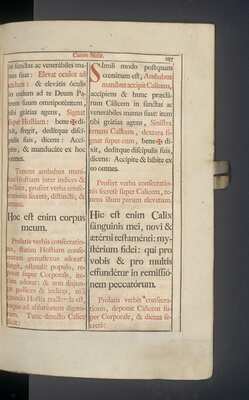 Canon Missæ.
187
tas ac venerabiles ma-
nus suas: Elevat oculos ad
cælum: & elevátis óculis
in cælum ad te Deum Pa-
trem suum omnipoténtem,
tibi grátias agens, Signat
super Hostiam: bene✠dí-
xit, fregit, dedítque discí-
pulis suis, dicens: Accí-
pite, & manducáte ex hoc
omnes.
Tenens ambabus mani-
bus Hostiam inter indices &
pollices, profert verba
secretè, distinctè, &
Hoc est enim corpus
meum.
Prolatis verbis consecratio-
nis, statim Hostiam
consecratam genuflexus adorat:
surgit, ostendit populo,
super Corporale,
adorat: & non
pollices & indices, nisi
Hostia tractanda est,
usque ad ablutionem digito-
rum. Tunc detecto Calice
Simili modo postquam
cœnátum est, Ambabus
manibus accipit Calicem,
accípiens & hunc præclá-
rum Cálicem in sanctas ac
venerábiles manus suas: item
tibi grátias agens, Sinistra
tenens Calicem, dextera si-
gnat super eum, bene✠dí-
xit, dedítque discípulis suis,
dicens: Accípite & bíbite ex
eo omnes.
Profert verba consecratio-
nis secretè super Calicem, te-
nens illum parum elevatum.
Hic est enim Calix
sánguinis mei, novi &
ætérni testaménti: my-
stérium fídei: qui pro
vobis & pro multis
effundétur in remissió-
nem peccatórum.
Prolatis verbis consecra-
tionis, deponit Calicem su-
per Corporale, & dicens se-
cretè: